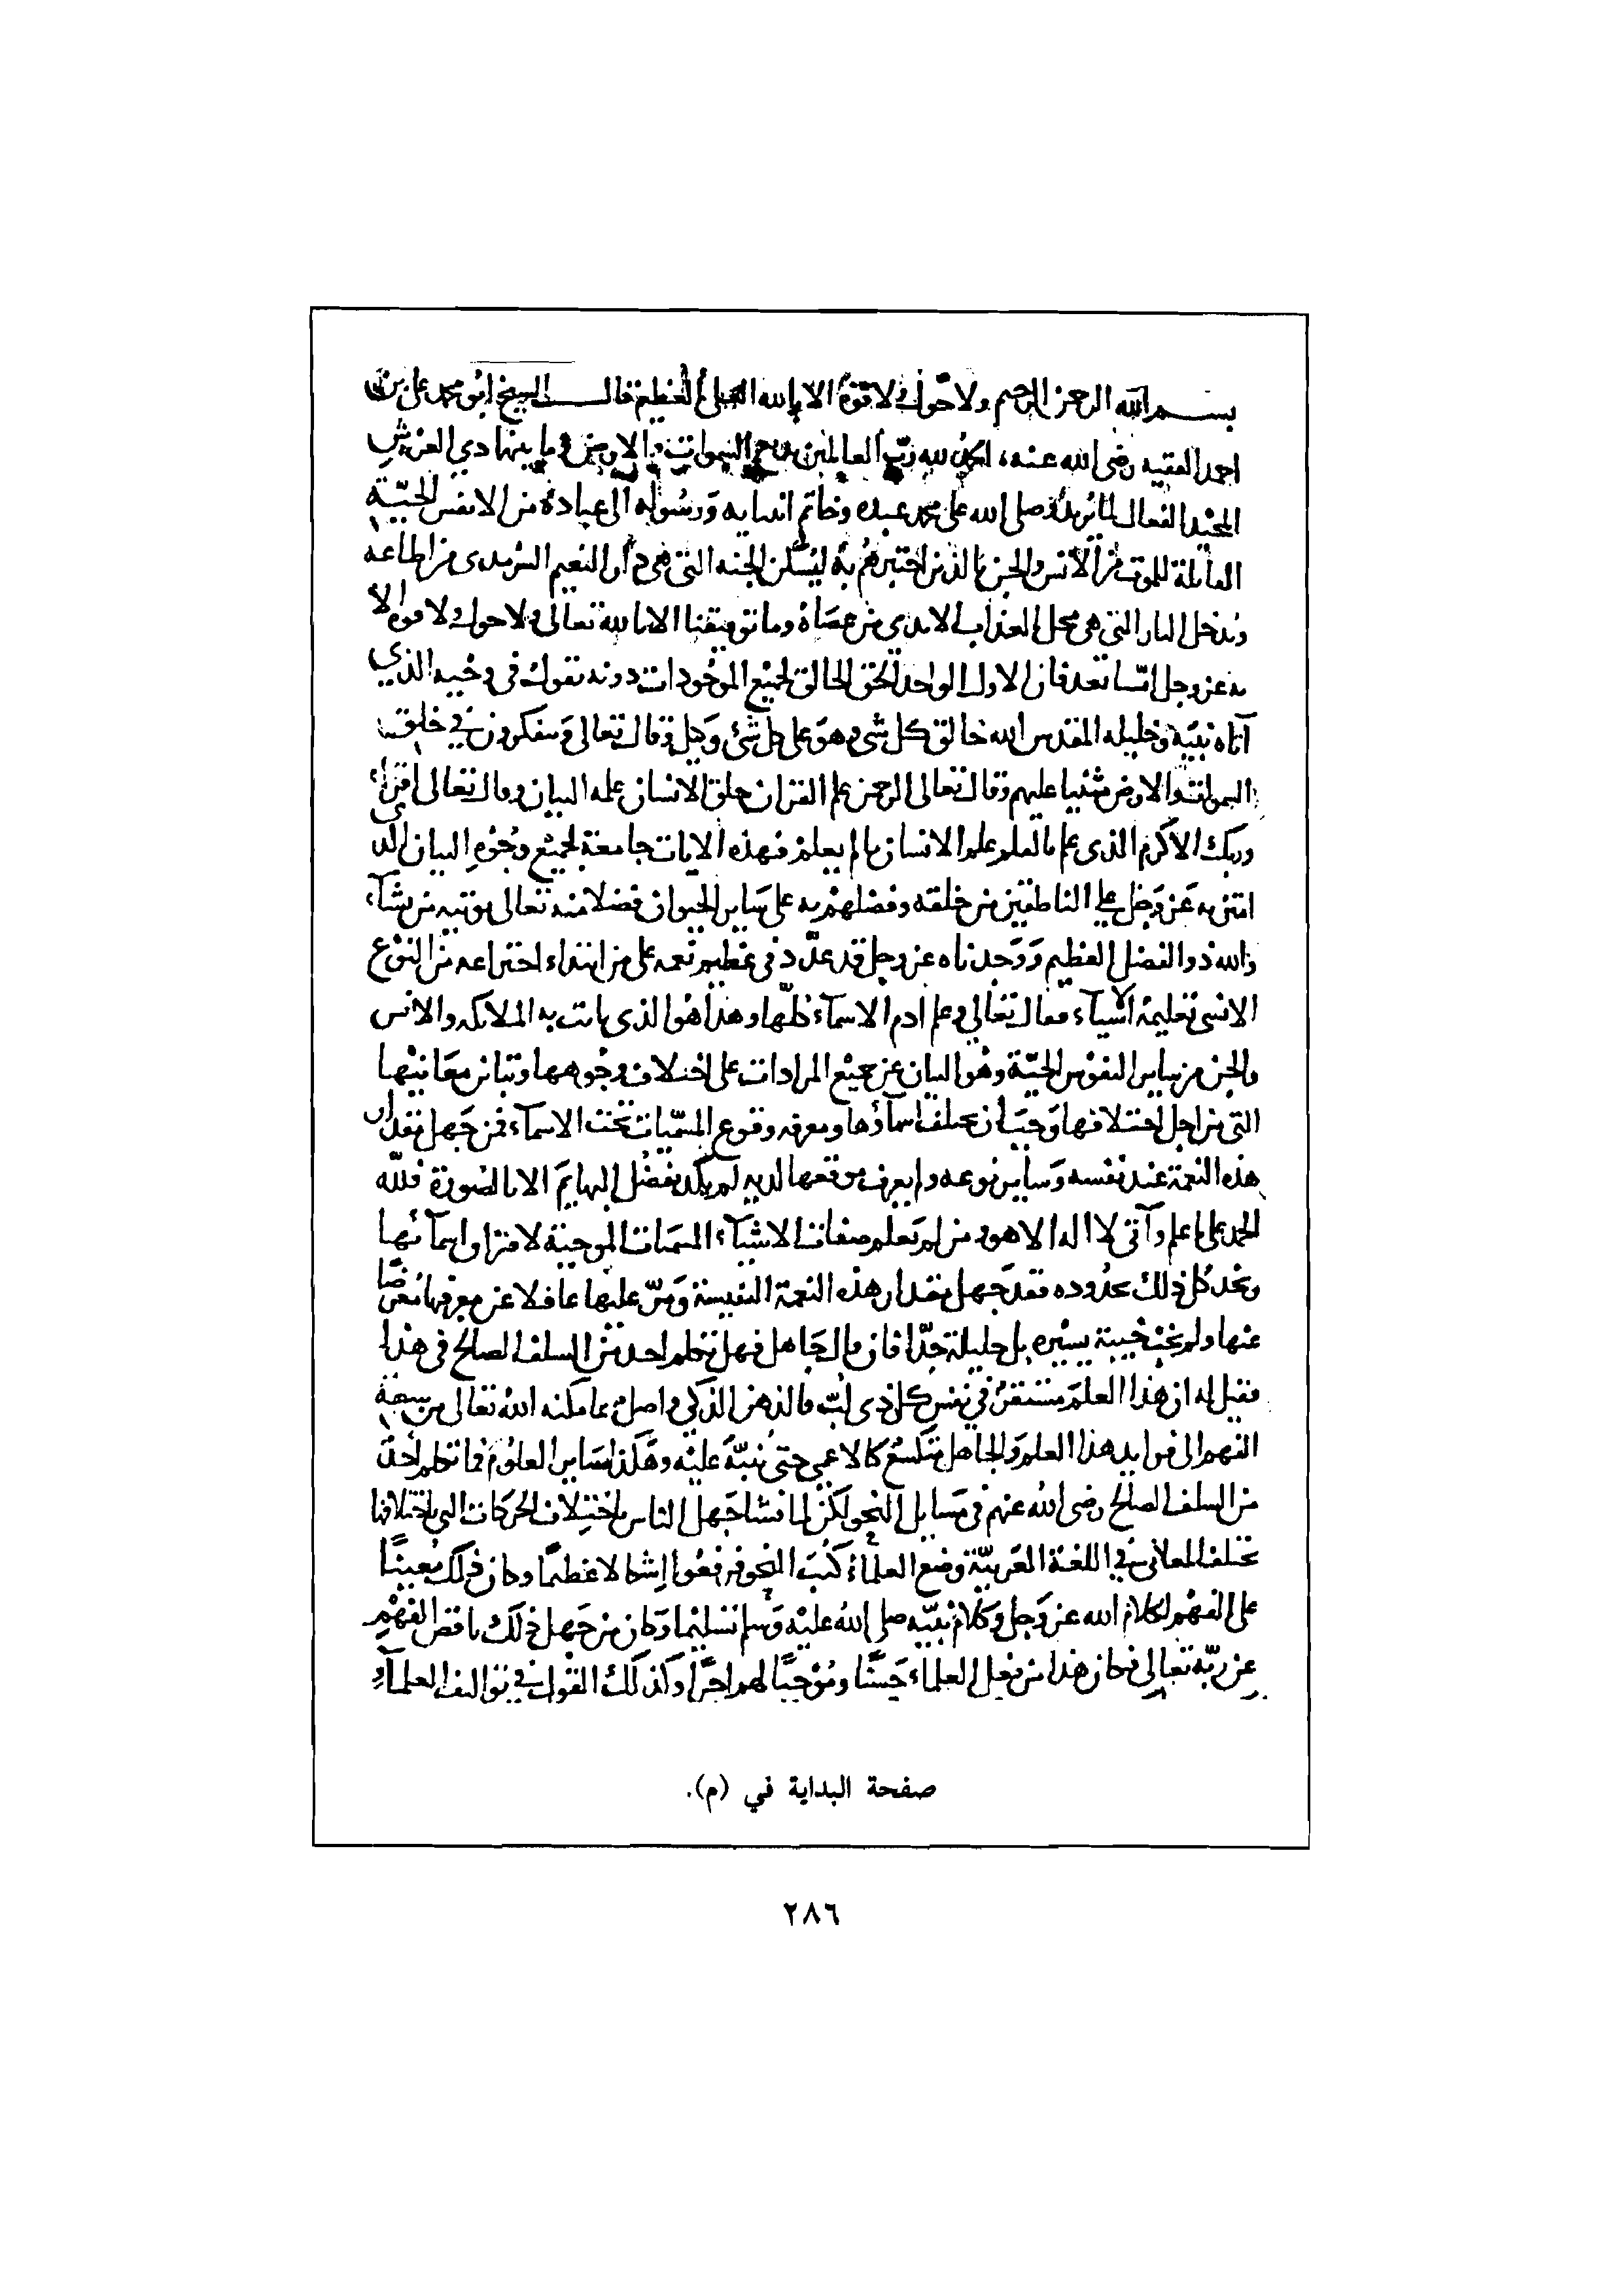 بسم الله الرحمن الرحيم ولا حول ولا قوة الا بالله العلي العظيم قال الشيخ ابو محمد علي بن
احمد الفقيه رضي الله عنه، الحمد لله رب العالمين بديع السموات والارض وما بينهما ذي العرش
المجيد الفعال لما يريد وصلى الله على محمد عبده وخاتم انبيايه ورسوله الى عباده من الانفس الحيّة
القابلة للموت من الانس والجن بالدين الذى اختبرهم به ليسكن الجنه التى هى دار النعيم السرمدى من اطاعه
وندخل النار التى هى محل العذاب الابدي من عصاه وما توفيقنا الا بالله تعالى ولا حول ولا قوة الا
به عز وجل امّا بعد فان الاول الواحد الحق الخالق لجميع الموجودات دونه تقول في وحيه الذي
آتاه نبيّه وخليله المقدس الله خالق كل شي وهو على كل شئ وكيل وقال تعالى ويتفكرون في خلق
السموات والارض مثنيا عليهم وقال تعالى الرحمن علم القران خلق الانسان علمه البيان وقال تعالى اقرا
وربك الاكرم الذى علم بالقلم علم الانسان ما لم يعلم فهذه الايات جامعة لجميع وجوه البيان الذى
امتن به عز وجل على الناطقين من خلقه وفضلهم به على سائر الحيوان فضلا منه تعالى يوتيه من يشآء
والله ذو الفضل العظيم ووجدناه عز وجل قد عدّد في عظيم نعمه على من ابتداء اختراعه من النوع
الانسي تعليمه اسمآء فقال تعالى وعلم ادم الاسمآء كلّها وهذا هو الذى بانت به الملائكه والانس
والجن من سائر النفوس الحيّة وهو البيان عن جميع المرادات على اختلاف وجوهها وتباين معانيها
التى من اجل اختلافها وجب أن تختلف اسماؤها ومعرفه وقوع المسمّيات تحت الاسمآء فمن جهل مقدار
هذه النعمة عند نفسه وسائر نوعه ولم يعرف موقعها لديه لم يكد يفضل البهايم الا بالصورة فلله
الحمد على ما علم وآتى لا اله الا هو ومن لم يعلم صفات الاشيآء المسميات الموجبة لافتراق اسمآئها
ونحد كل ذلك بحدوده فقد جهل مقدار هذه النعمة النفيسة ومرّ عليها غافلا عن معرفتها معرضًا
عنها ولم يخب خيبة يسيره بل جليلة جدّا فان قال جاهل فهل تكلم احد من السلف الصالح في هذا
فقيل له ان هذا العلم مستقر في نفس كل ذى لبّ فالذهن الذكي واصل بما مكنه الله تعالى من سعة
الفهم الى فوايد هذا العلم والجاهل متكسع كالاعمى حتى ينبّه عليه وهكذا سائر العلوم فما تكلم احد
من السلف الصالح رضى الله عنهم في مسايل النحو لكن لما فشا جهل الناس باختلاف الحركات التى باختلافها
تختلف المعاني في اللغة العربيّة وضع العلمآء كتب النحو فرفعوا اشكالا عظيمًا وكان ذلك معينًا
على الفهم لكلام الله عز وجل وكلام نبيّه صلى الله عليه وسلم تسليما وكان من جهل ذلك ناقص الفهم
عن ربّه تعالى فكان هذا من فعل العلماء حسنًا وموجبًا لهم اجرًا وكذلك القول في تواليف العلمآء
صفحة البداية في (م).
٢٨٦